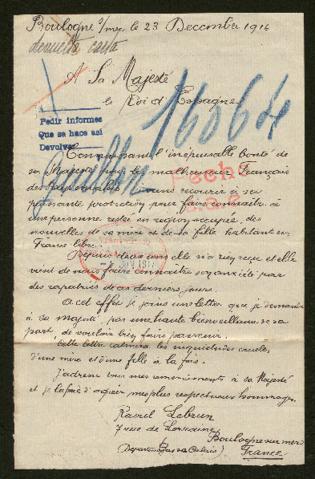 Boulogne s/mer le 23 Decembre 1916
devuelta carta
A Sa Majesté
le Roi d'Espagne
Pedir informes
Que se hace así
Devolver
Connaissant l'inépuisable bonté de
sa Majesté pour les malheureux Français
recourir à sa
puissante protection pour faire connaître à
une personne restée en région occupée, des
nouvelles de sa mère et de sa fille habitant en
France libre.
Depuis deux ans elle n'a rien reçu et elle
vient de nous faire connaître son anxiété par
des rapatriés de ces derniers jours.
A cet effet je joins une lettre que je demande
à sa majesté par une haute bienveillance de sa
part de vouloir bien faire parvenir.
Cette lettre calmera les inquiétudes cruelles
d'une mère et d'une fille à la fois.
J'adresse tous mes remerciements à sa Majesté
et je la prie d'agréer mes plus respectueux hommages.
Raoul Lebrun
7 rue de Lorraine
Boulogne sur mer
(Pas de Calais)
France